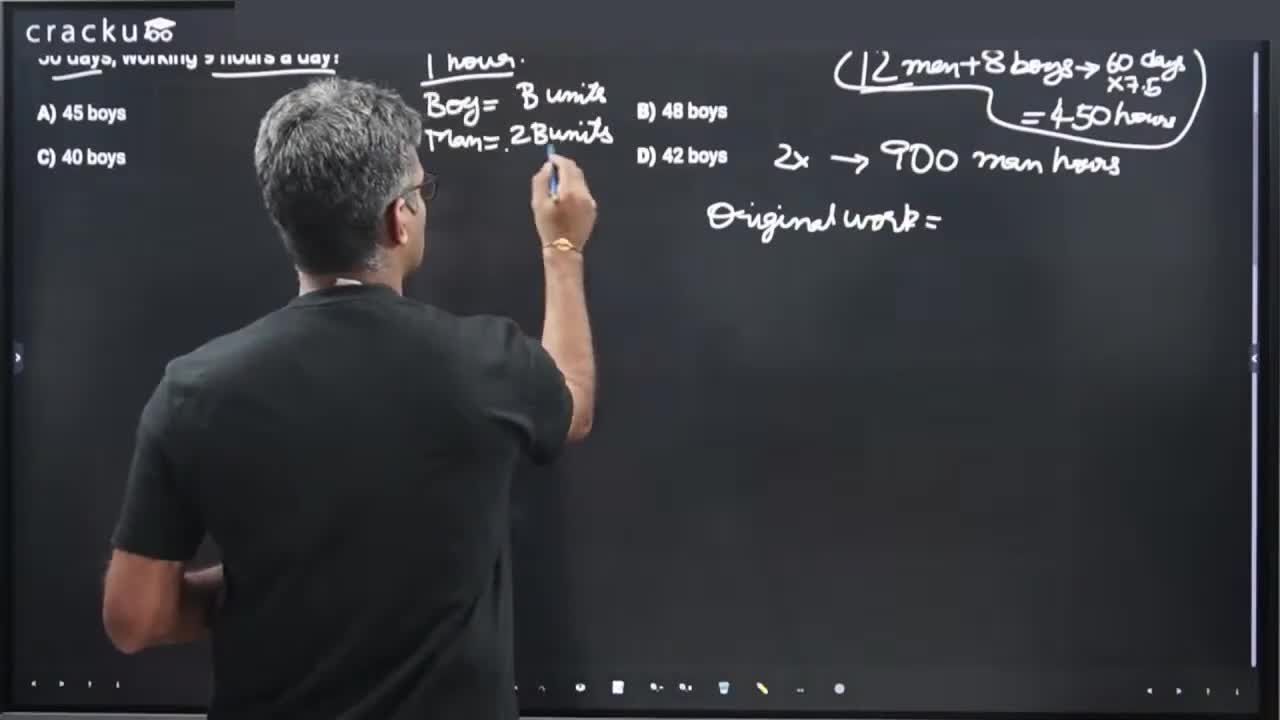 cracku
50 days, working 9 hours a day?
A) 45 boys
B) 48 boys
C) 40 boys
D) 42 boys
1 hour.
Boy = B units
Man = 2B units
12 men + 8 boys → 60 days
×7.5
= 450 hours
2x → 900 man hours
Original work =